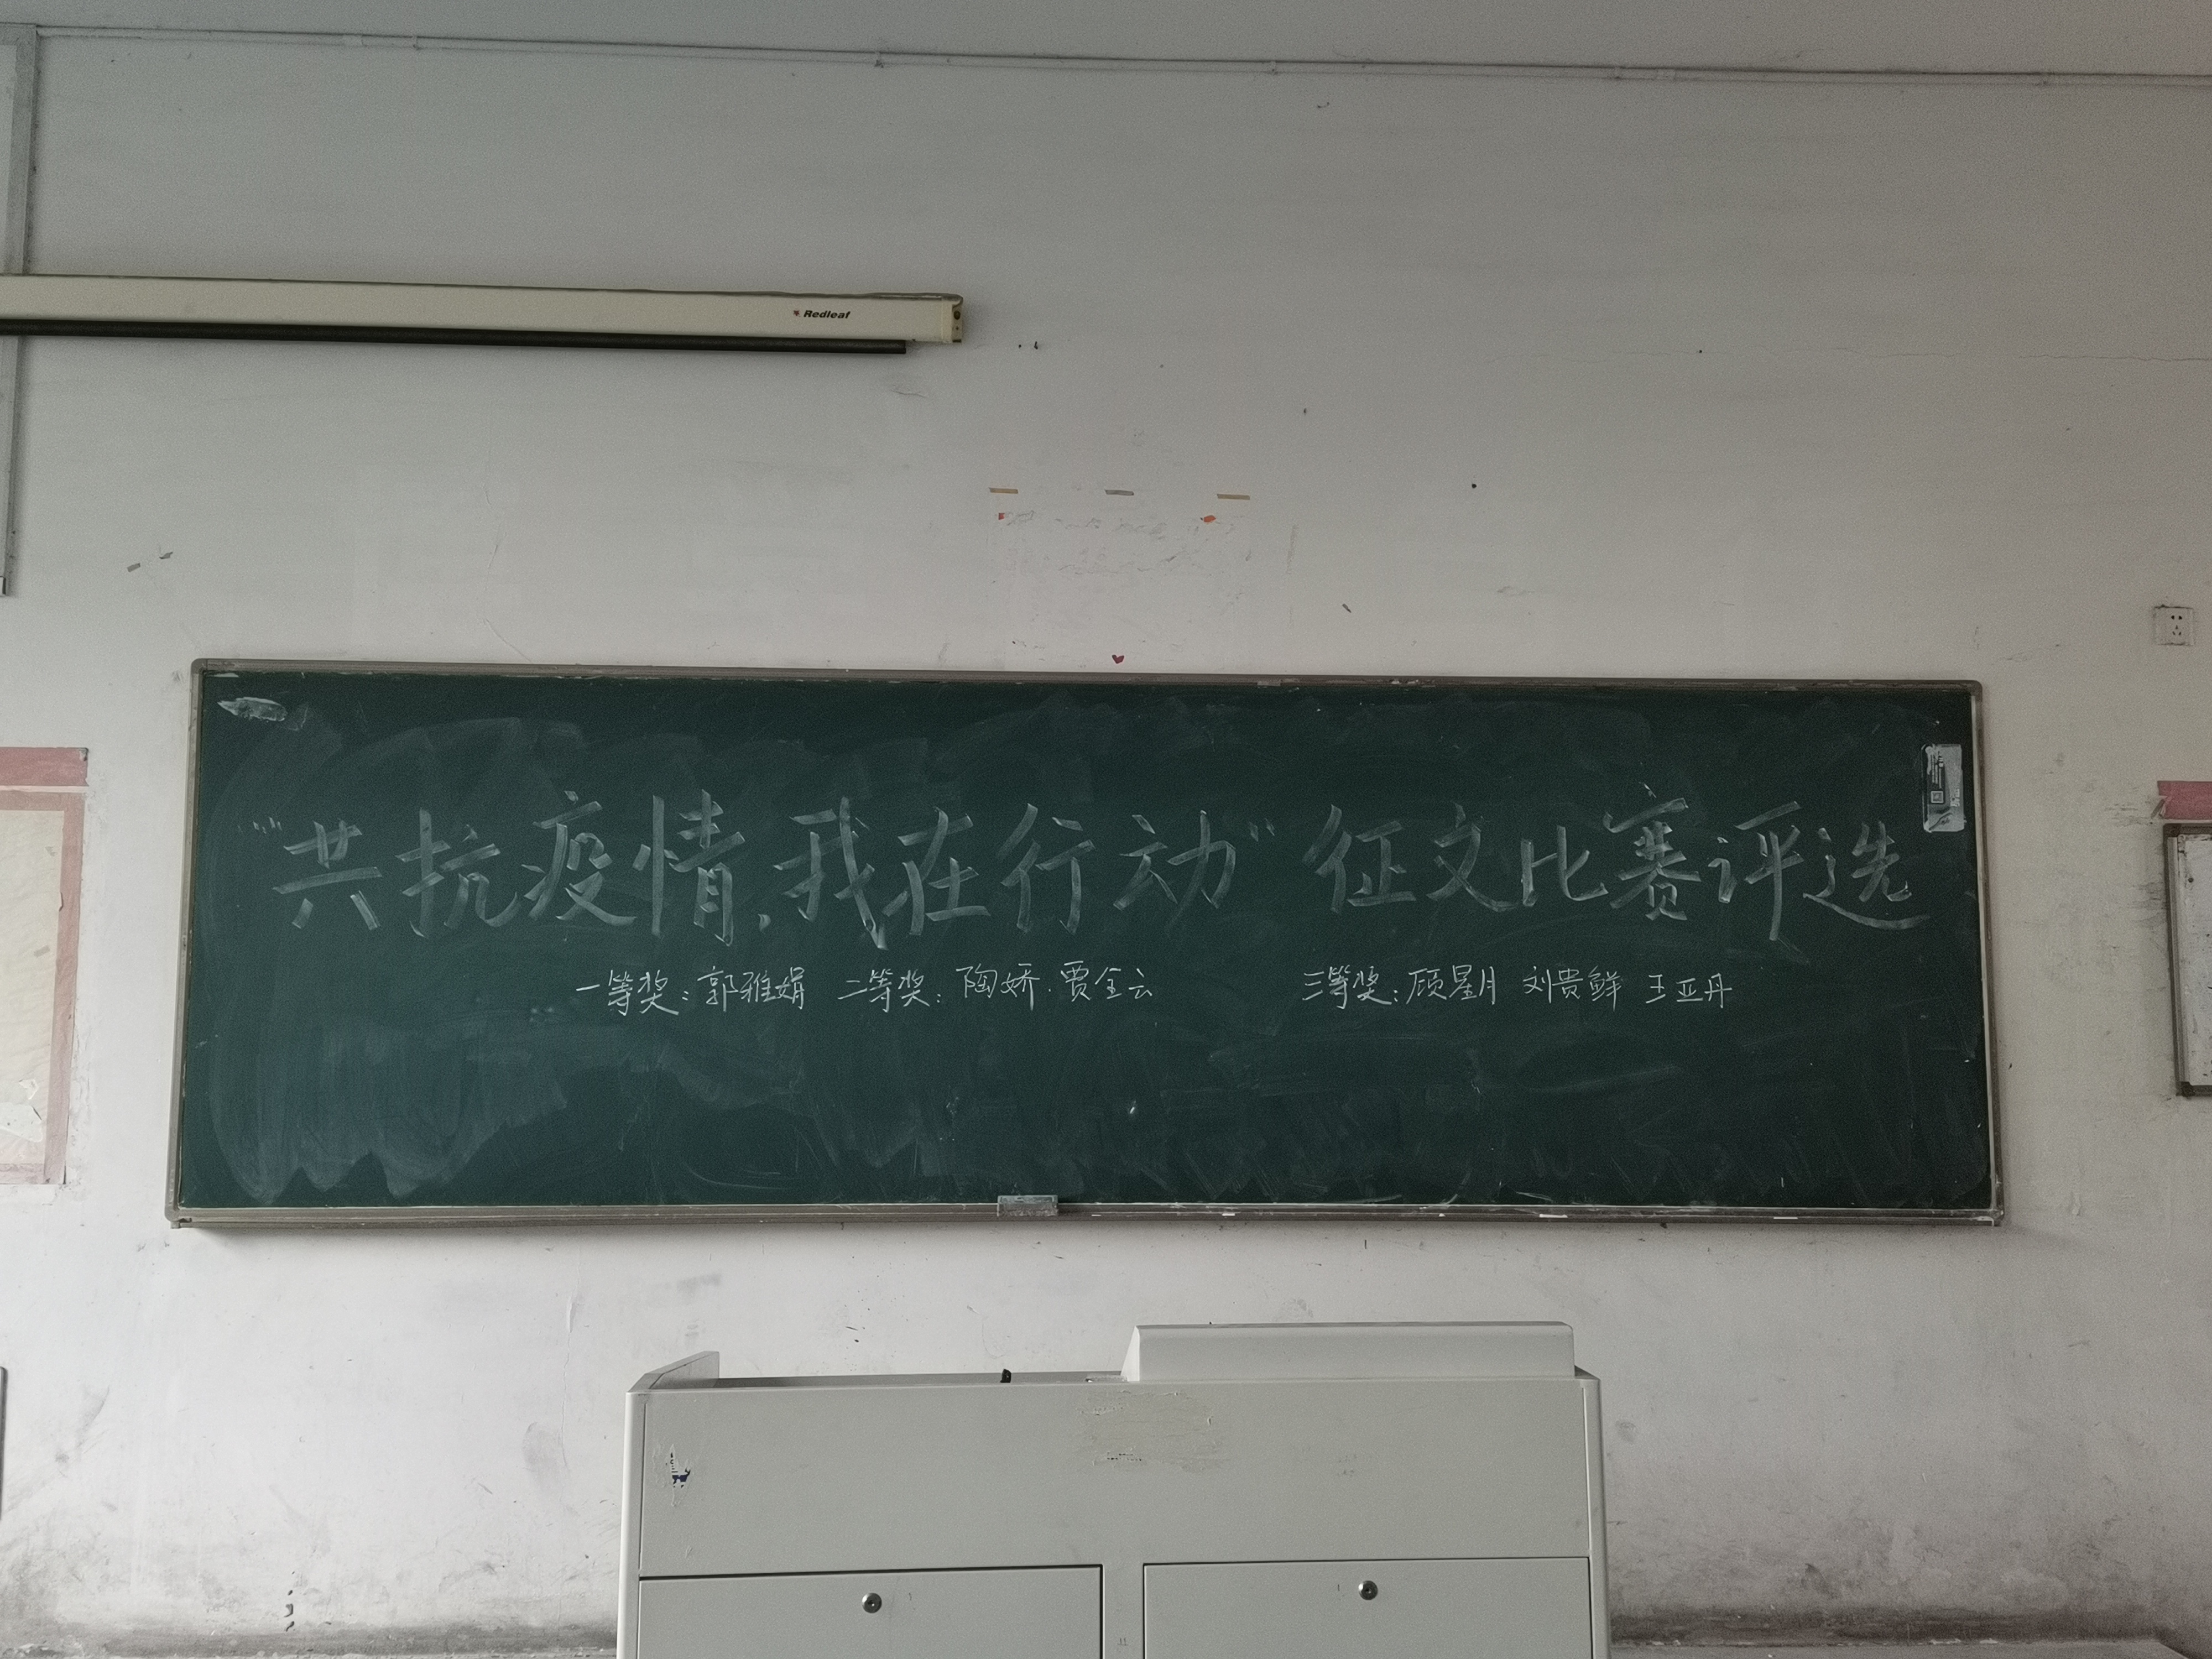 Redleaf
“共抗疫情，我在行动”征文比赛评选
一等奖：郭雅娟 二等奖：陶娇·贾全云 三等奖：顾星月 刘贵鲜 王亚丹